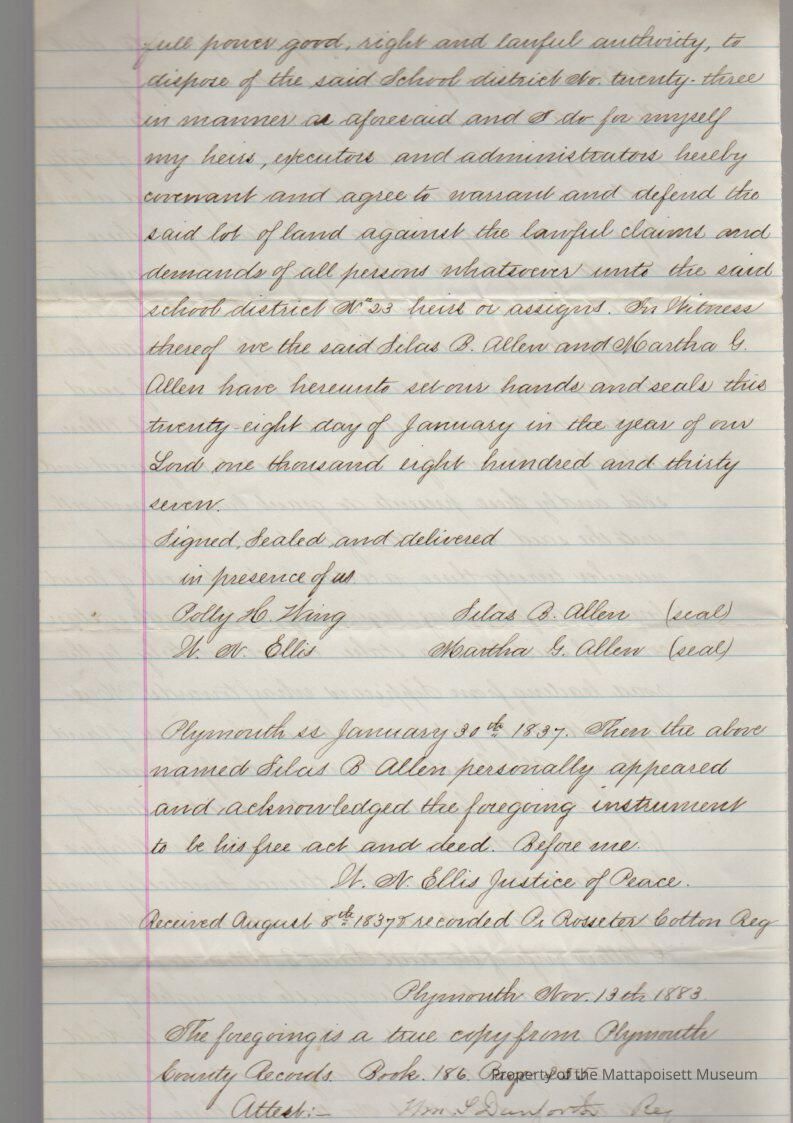 full power good, right and lawful authority, to
dispose of the said School district No. twenty-three
in manner as aforesaid and I do for myself
my heirs, executors and administrators hereby
covenant and agree to warrant and defend the
said lot of land against the lawful claims and
demands of all persons whatsoever unto the said
school district No 23 heirs or assigns. In Witness
thereof we the said Silas B. Allen and Martha G.
Allen have hereunto set our hands and seals this
twenty-eight day of January in the year of our
Lord one thousand eight hundred and thirty
seven.
Signed, Sealed and delivered
in presence of us
Polly H. Wing Silas B. Allen (seal)
W. N. Ellis Martha G. Allen (seal)
Plymouth ss January 30th 1837. Then the above
named Silas B Allen personally appeared
and acknowledged the foregoing instrument
to be his free act and deed. Before me.
W. N. Ellis Justice of Peace.
Received August 8th 1837 & recorded Pr Rosseter Cotton Reg
Plymouth Nov. 13th 1883.
The foregoing is a true copy from Plymouth
County Records. Book. 186. Page
Property of the Mattapoisett Museum
Attest:- Wm. S. Danforth Reg